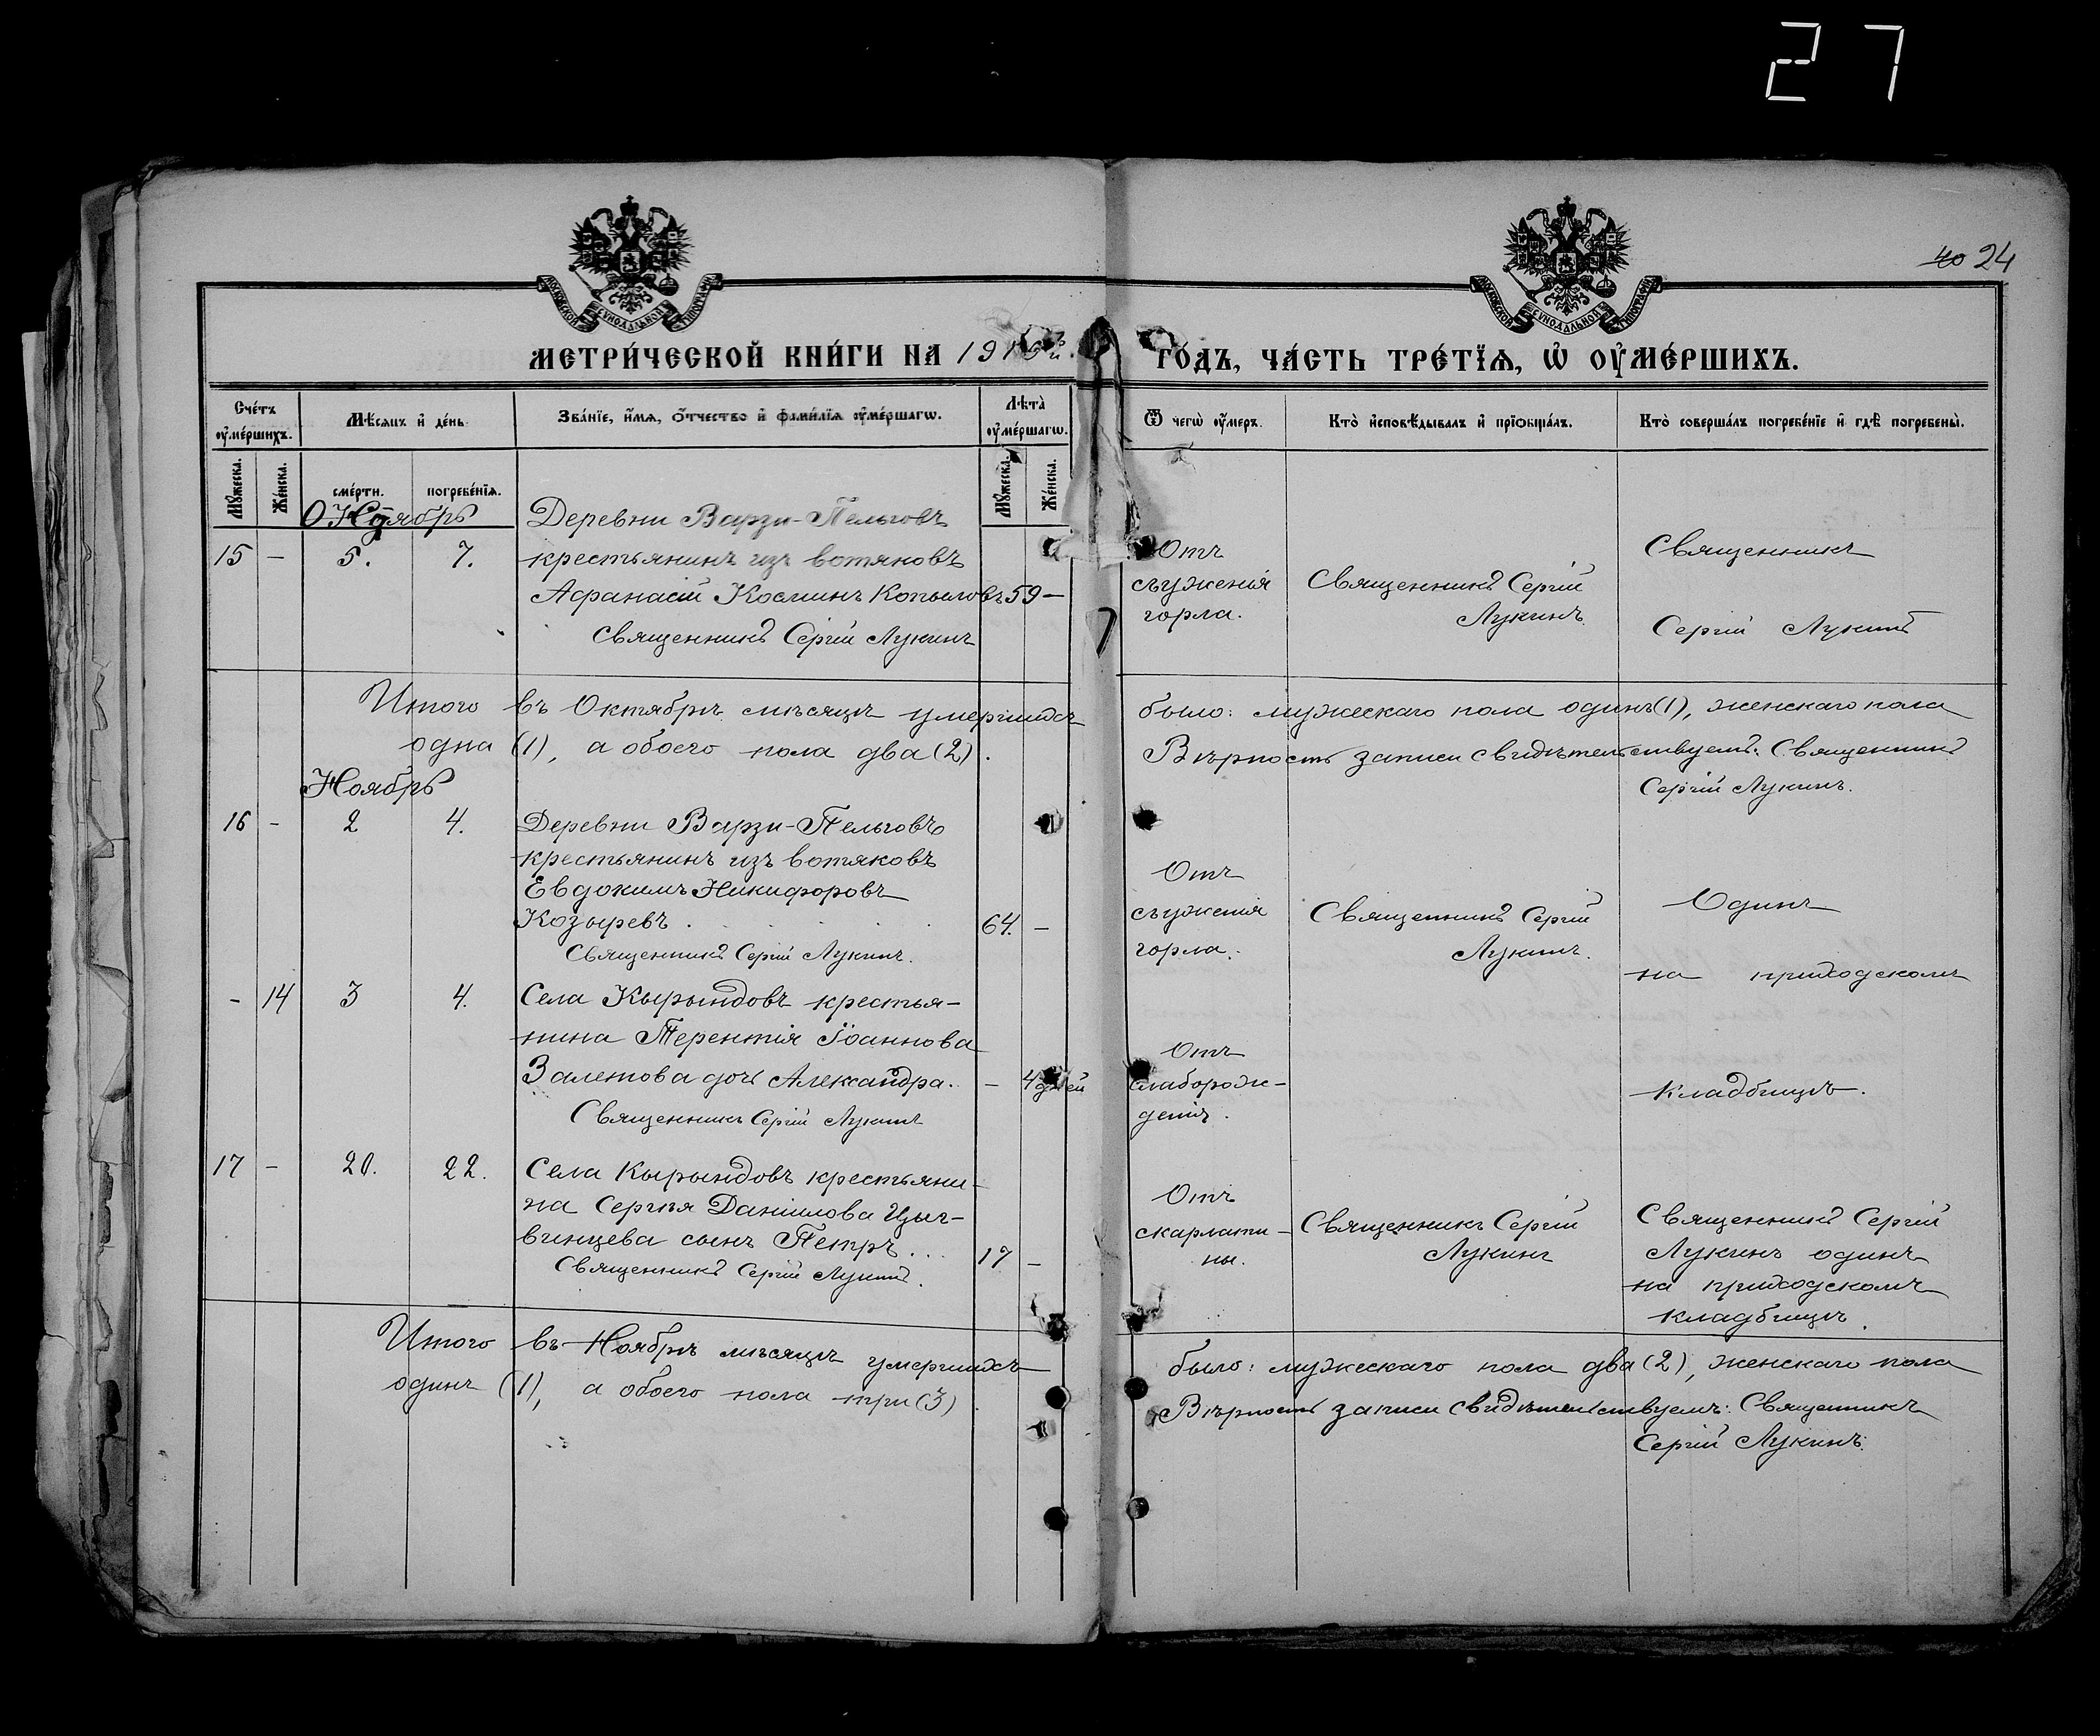 27
40 24
МОСКОВСКОЙ СѴНОДАЛЬНОЙ ТИПОГРАФІИ
МОСКОВСКОЙ СѴНОДАЛЬНОЙ ТИПОГРАФІИ
МЕТРИ́ЧЕСКОЙ КНИ́ГИ НА 191 й
ГО́ДЪ, ЧА́СТЬ ТРЕ́ТЇѦ, Ѡ҆ ОУ҆МЕ́РШИХЪ.
Сче́тъ оу҆ме́ршихъ.
Мѣ́сяцъ и҆ де́нь.
Зва́нїе, и҆́мѧ, ѻ҆́тчество и҆ фами́лїѧ оу҆ме́ршагѡ.
Лѣ̀та оу҆ме́ршагѡ.
Ѿ чегѡ̀ оу҆́меръ.
Кто̀ и҆сповѣ́дывалъ и҆ прїѡбща́лъ.
Кто̀ соверша́лъ погребе́нїе и҆ гдѣ̀ погребены̀.
Мꙋ́жеска.
Же́нска.
сме́рти.
погребе́нїѧ.
Мꙋ́жеска.
Же́нска.
Деревни Варзи-Пельговъ
15 - 5. 7. крестьянинъ изъ вотяковъ
Афанасій Косминъ Копыловъ 59 -
Священникъ Сергій Лукинъ
Отъ
съуженія
горла.
Священникъ Сергій
Лукинъ
Священникъ
Сергій Лукинъ
Итого въ Октябрѣ мѣсяцѣ умершихъ было: мужескаго пола одинъ (1), женскаго пола
одна (1), а обоего пола два (2). Вѣрность записи свидѣтельствуемъ: Священникъ
Сергій Лукинъ.
Ноябрь
16 - 2 4. Деревни Варзи-Пельговъ
крестьянинъ изъ вотяковъ
Евдокимъ Никифоровъ
Козыревъ 64. -
Священникъ Сергій Лукинъ.
Отъ
съуженія
горла.
Священникъ Сергій
Лукинъ.
Одинъ
на приходскомъ
- 14 3 4. Села Кырындовъ крестья-
нина Терентія Іоаннова
Залетова дочь Александра. - 4 дней
Священникъ Сергій Лукинъ
Отъ
слаборож-
денія.
кладбищѣ.
17 - 20. 22. Села Кырындовъ крестьяни-
на Сергѣя Даніилова Цыг-
винцева сынъ Петръ... 17 -
Священникъ Сергій Лукинъ.
Отъ
скарлати-
ны.
Священникъ Сергій
Лукинъ
Священникъ Сергій
Лукинъ одинъ
на приходскомъ
кладбищѣ.
Итого въ Ноябрѣ мѣсяцѣ умершихъ было: мужескаго пола два (2), женскаго пола
одинъ (1), а обоего пола три (3). Вѣрность записи свидѣтельствуемъ: Священникъ
Сергій Лукинъ.